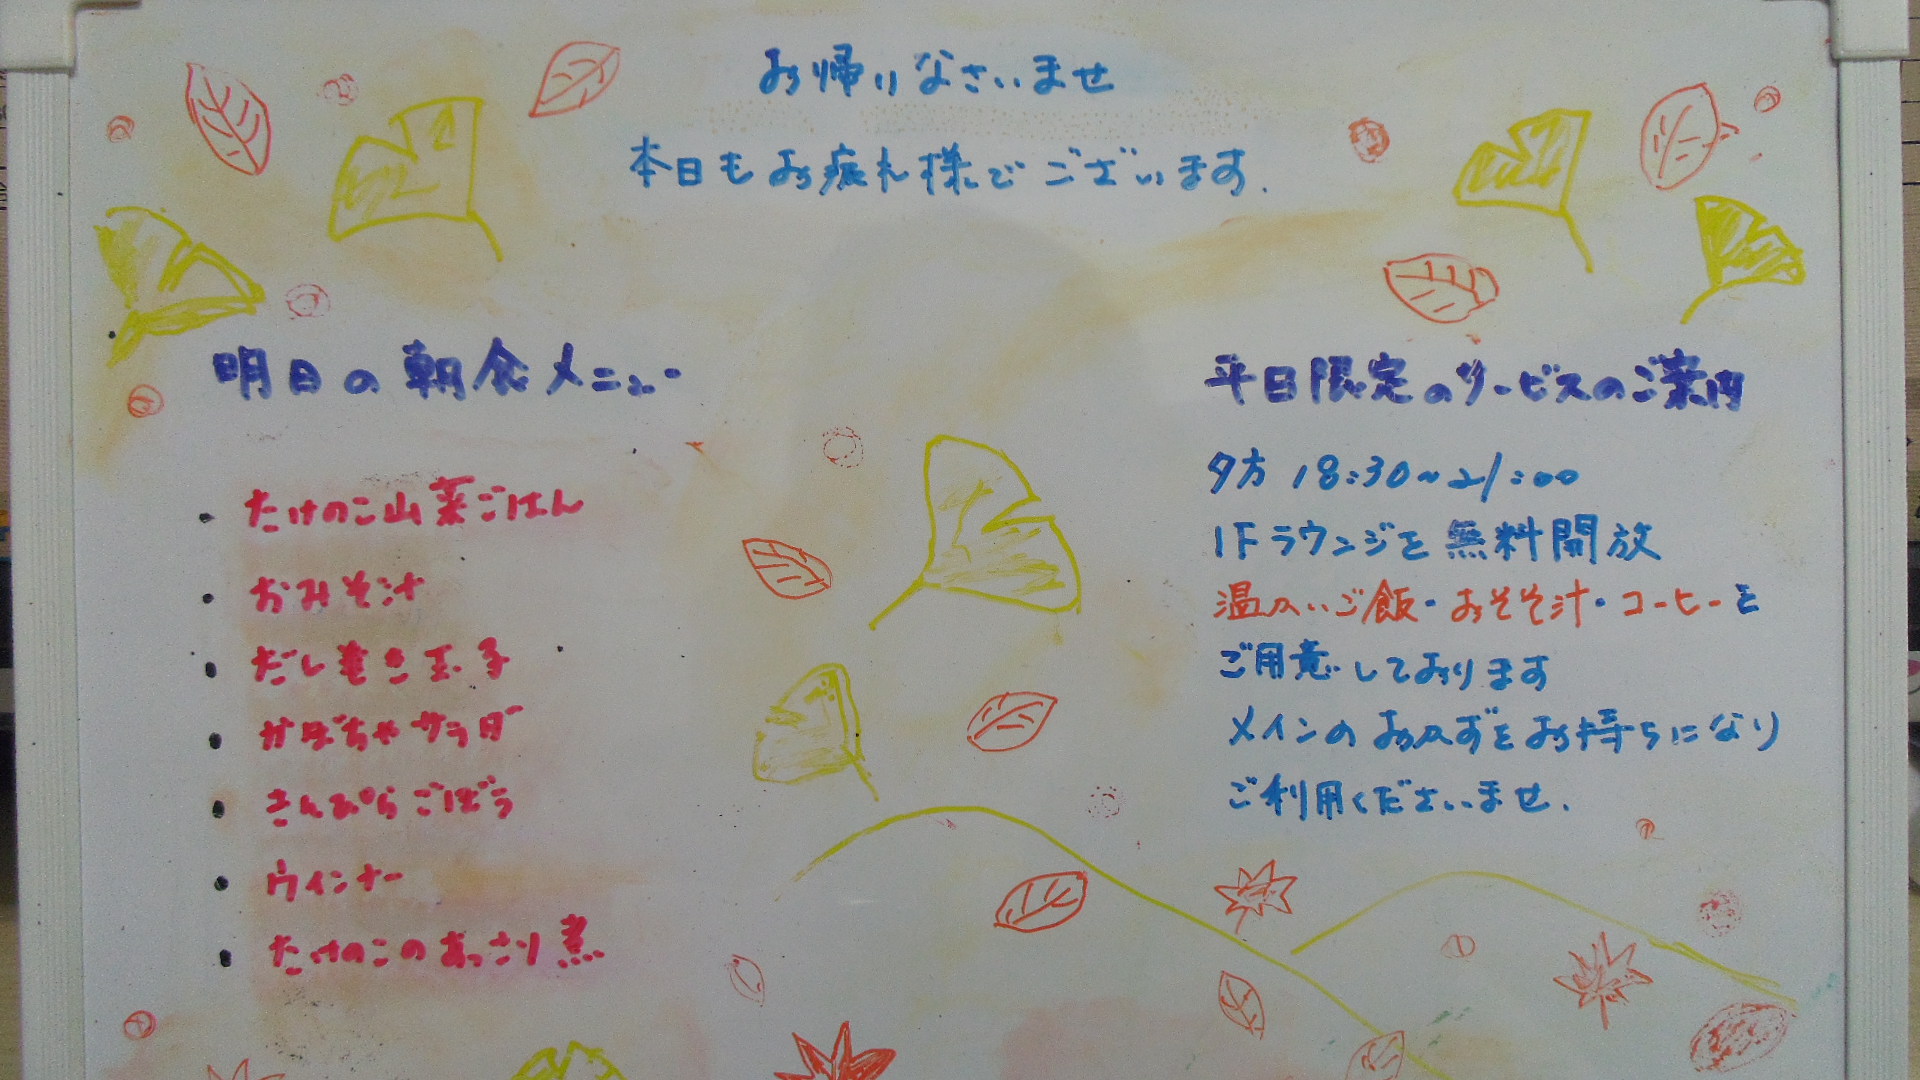 お帰りなさいませ
本日もお疲れ様でございます.
明日の朝食メニュー
・たけのこ山菜ごはん
・おみそ汁
・だし巻き玉子
・かぼちゃサラダ
・きんぴらごぼう
・ウインナー
・たけのこのあっさり煮
平日限定のサービスのご案内
夕方 18:30~21:00
1Fラウンジを無料開放
温かいご飯・おそそ汁・コーヒーを
ご用意しております
メインのおかずをお持ちになり
ご利用くださいませ.